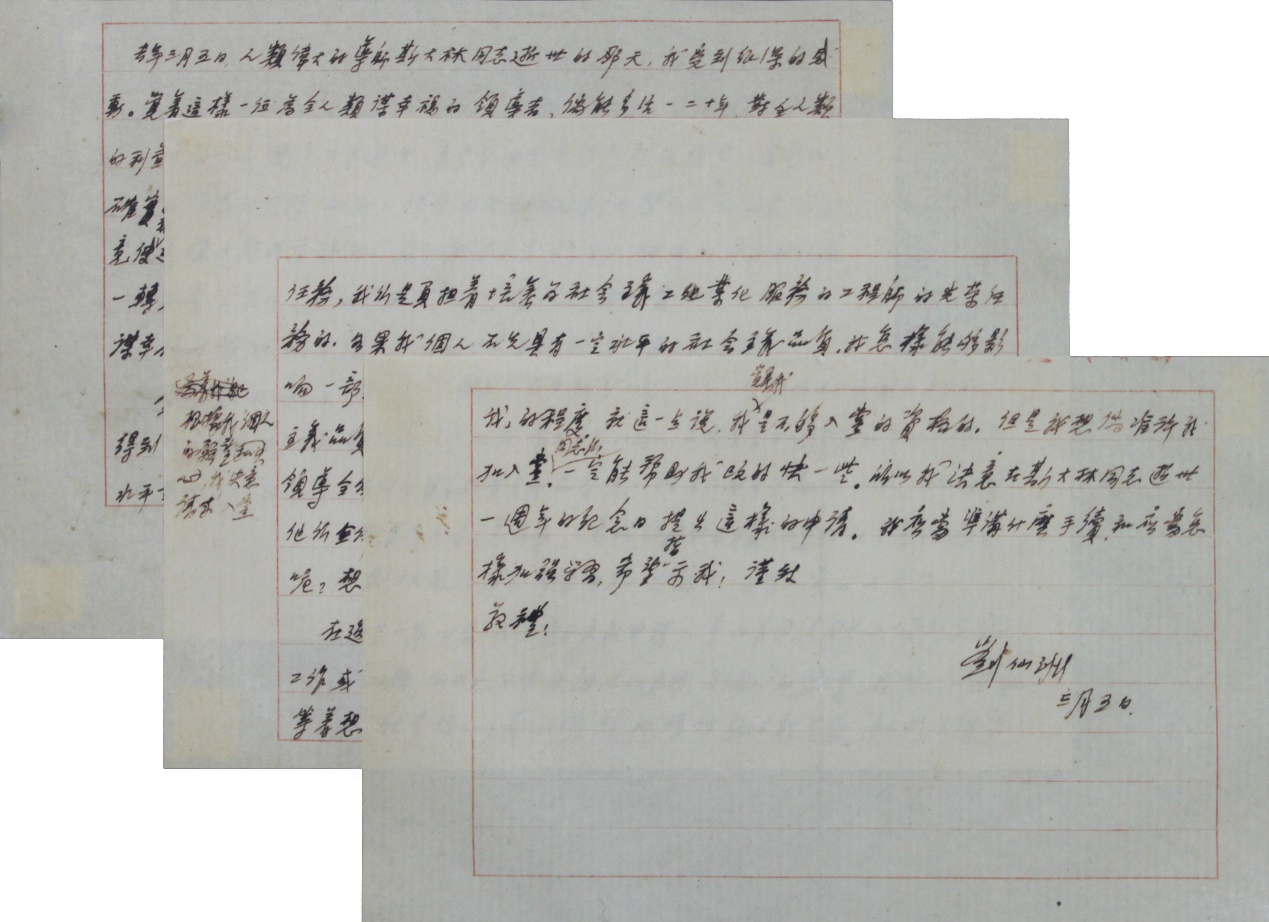 去年三月五日，人類偉大的導師斯大林同志逝世的那天，我受到很深的感
動。覺着這樣一位為全人類謀幸福的領導者，倘能多活一二十年，對全人類
的利益
確實
竟使
一轉
謀幸
得到
水平
任務，我們是負担着培養為社會主義工業化服務的工程師的光榮任
務的。如果我個人不先具有一定水平的社會主義品質，我怎樣能够影
响一部
主義品質
領導全
他所
呢？想
在這
工作或
等着想
根據我個人
的
心，我決意
請求入党
我的程度，就這一点說，我覺我是不够入黨的資格的。但是我想倘准許我
加入黨，同志們一定能幫助我改的快一些。所以我決意在斯大林同志逝世
一週年的紀念日提出這樣的申請。我應當準備什麼手續，和應當怎
樣加強學習，希望指示我！謹致
敬禮！
劉仙洲
三月五日